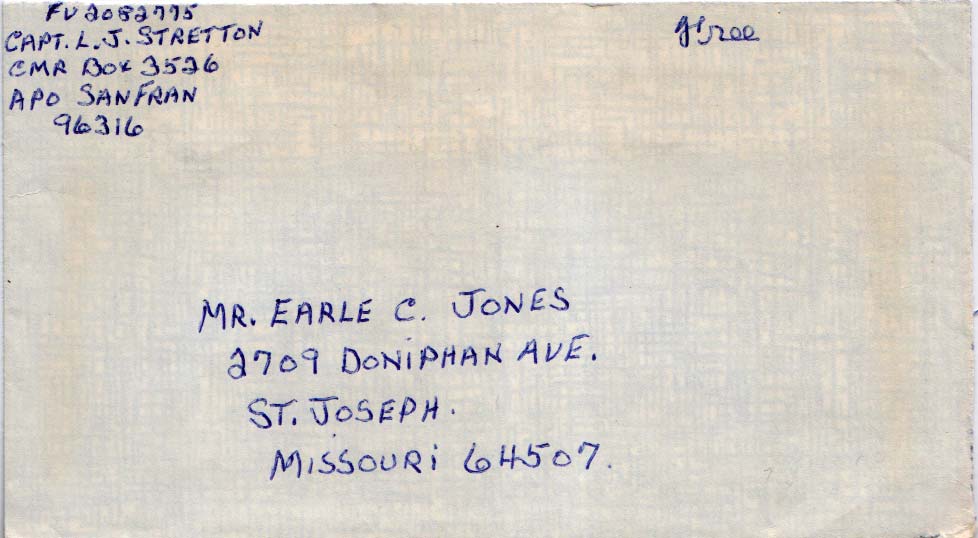 FV2082775
CAPT. L. J. STRETTON
CMR BOX 3526
APO SANFRAN
96316
Free
MR. EARLE C. JONES
2709 DONIPHAN AVE.
ST. JOSEPH.
MISSOURI 64507.